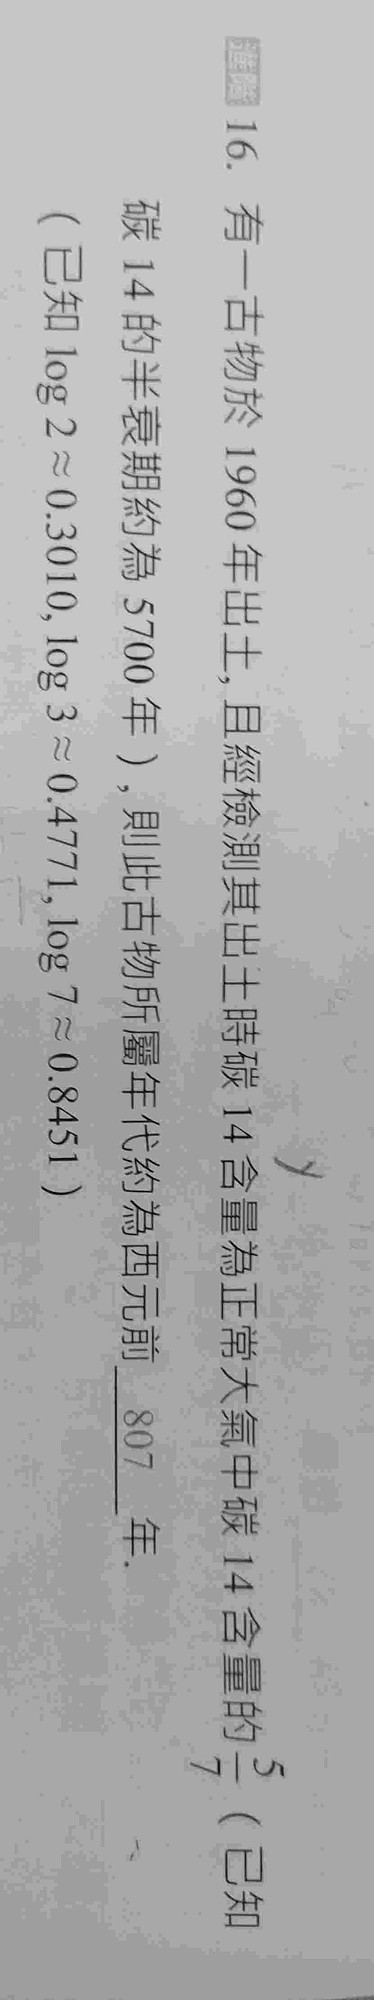 進階 16. 有一古物於 1960 年出土, 且經檢測其出土時碳 14 含量為正常大氣中碳 14 含量的 5/7 ( 已知
碳 14 的半衰期約為 5700 年 ), 則此古物所屬年代約為西元前 807 年.
( 已知 log 2 ≈ 0.3010, log 3 ≈ 0.4771, log 7 ≈ 0.8451 )